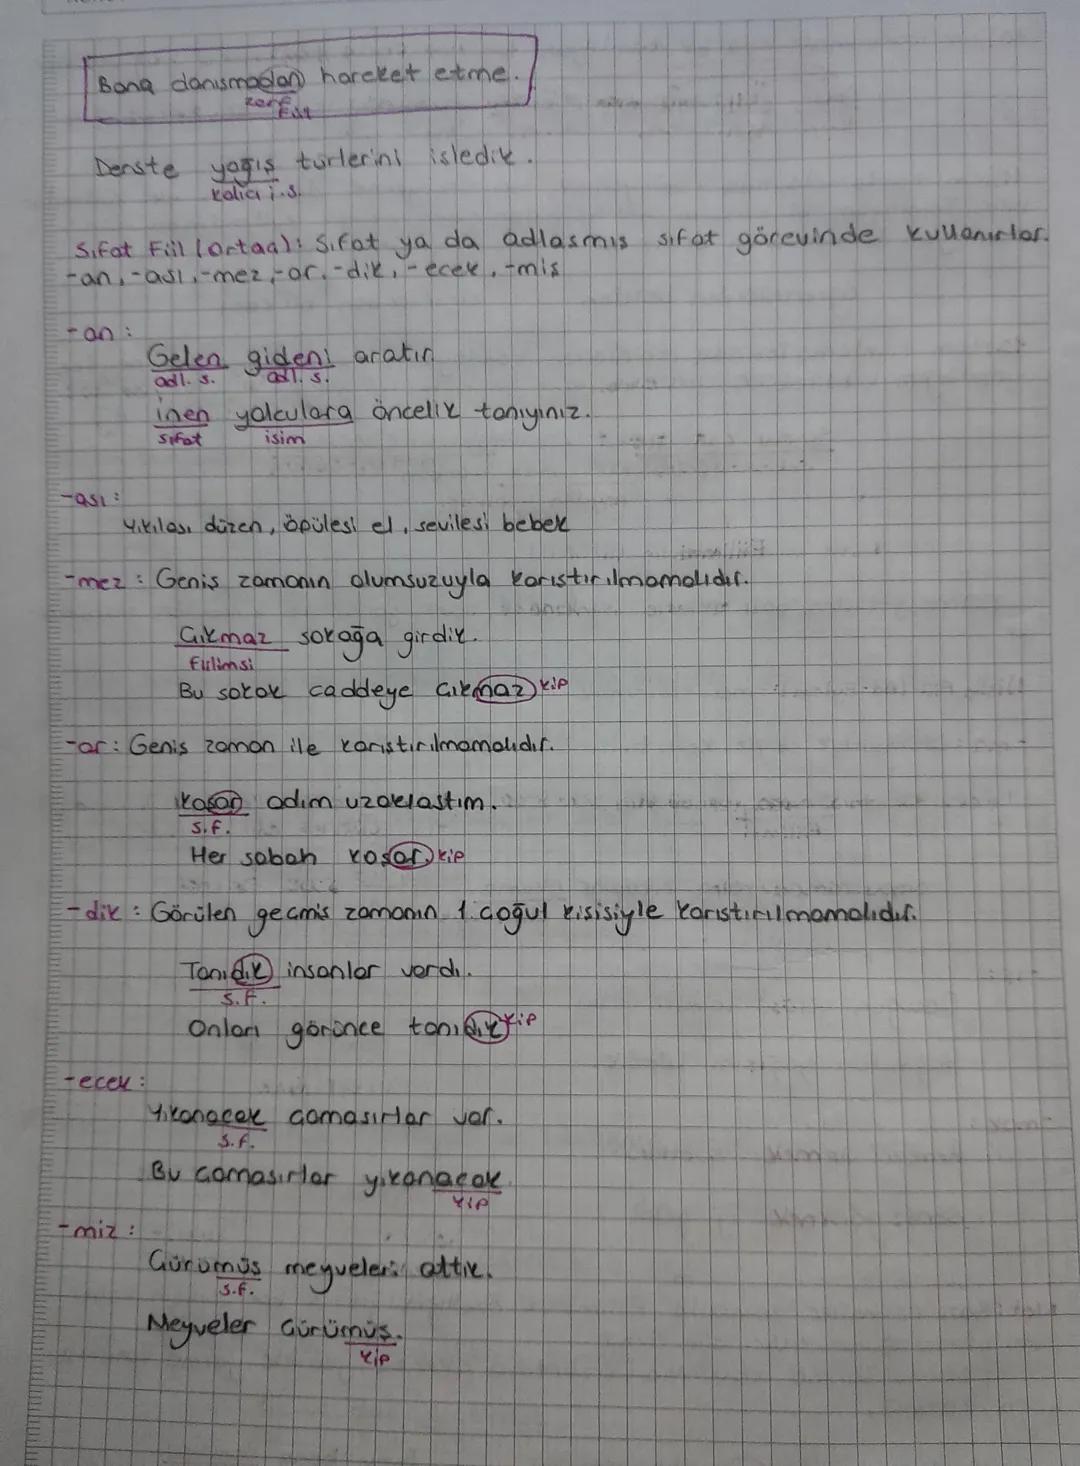 Bana danışmadan hareket etme.
zarf
Fiil
Derste yağış türlerini işledik.
kalıcı i.s.
Sıfat Fiil (ortaç): Sıfat ya da adlaşmış sıfat görevinde kullanırlar.
-an, -ası, -mez, -or, -dik, -ecek, -miş
-an:
Gelen gideni aratır
adl. s. adl. s.
inen yolculara öncelik tanıyınız.
sıfat isim
-ası:
Yıkılası düzen, öpülesi el, sevilesi bebek
-mez: Geniş zamanın olumsuzuyla karıştırılmamalıdır.
Çıkmaz sokağa girdik.
Fiilimsi
Bu sokak caddeye çıkmaz kip
-ar: Geniş zaman ile karıştırılmamalıdır.
koşar adım uzaklaştım.
s.f.
Her sabah koşar kip
-dik: Görülen geçmiş zamanın 1. çoğul kişisiyle karıştırılmamalıdır.
Tanıdık insanlar vardı.
s.f.
Onları görünce tanıdık kip
-ecek:
Yıkanacak çamaşırlar var.
s.f.
Bu çamaşırlar yıkanacak
kip
-miz:
Çürümüş meyveleri attık.
s.f.
Meyveler çürümüş.
kip